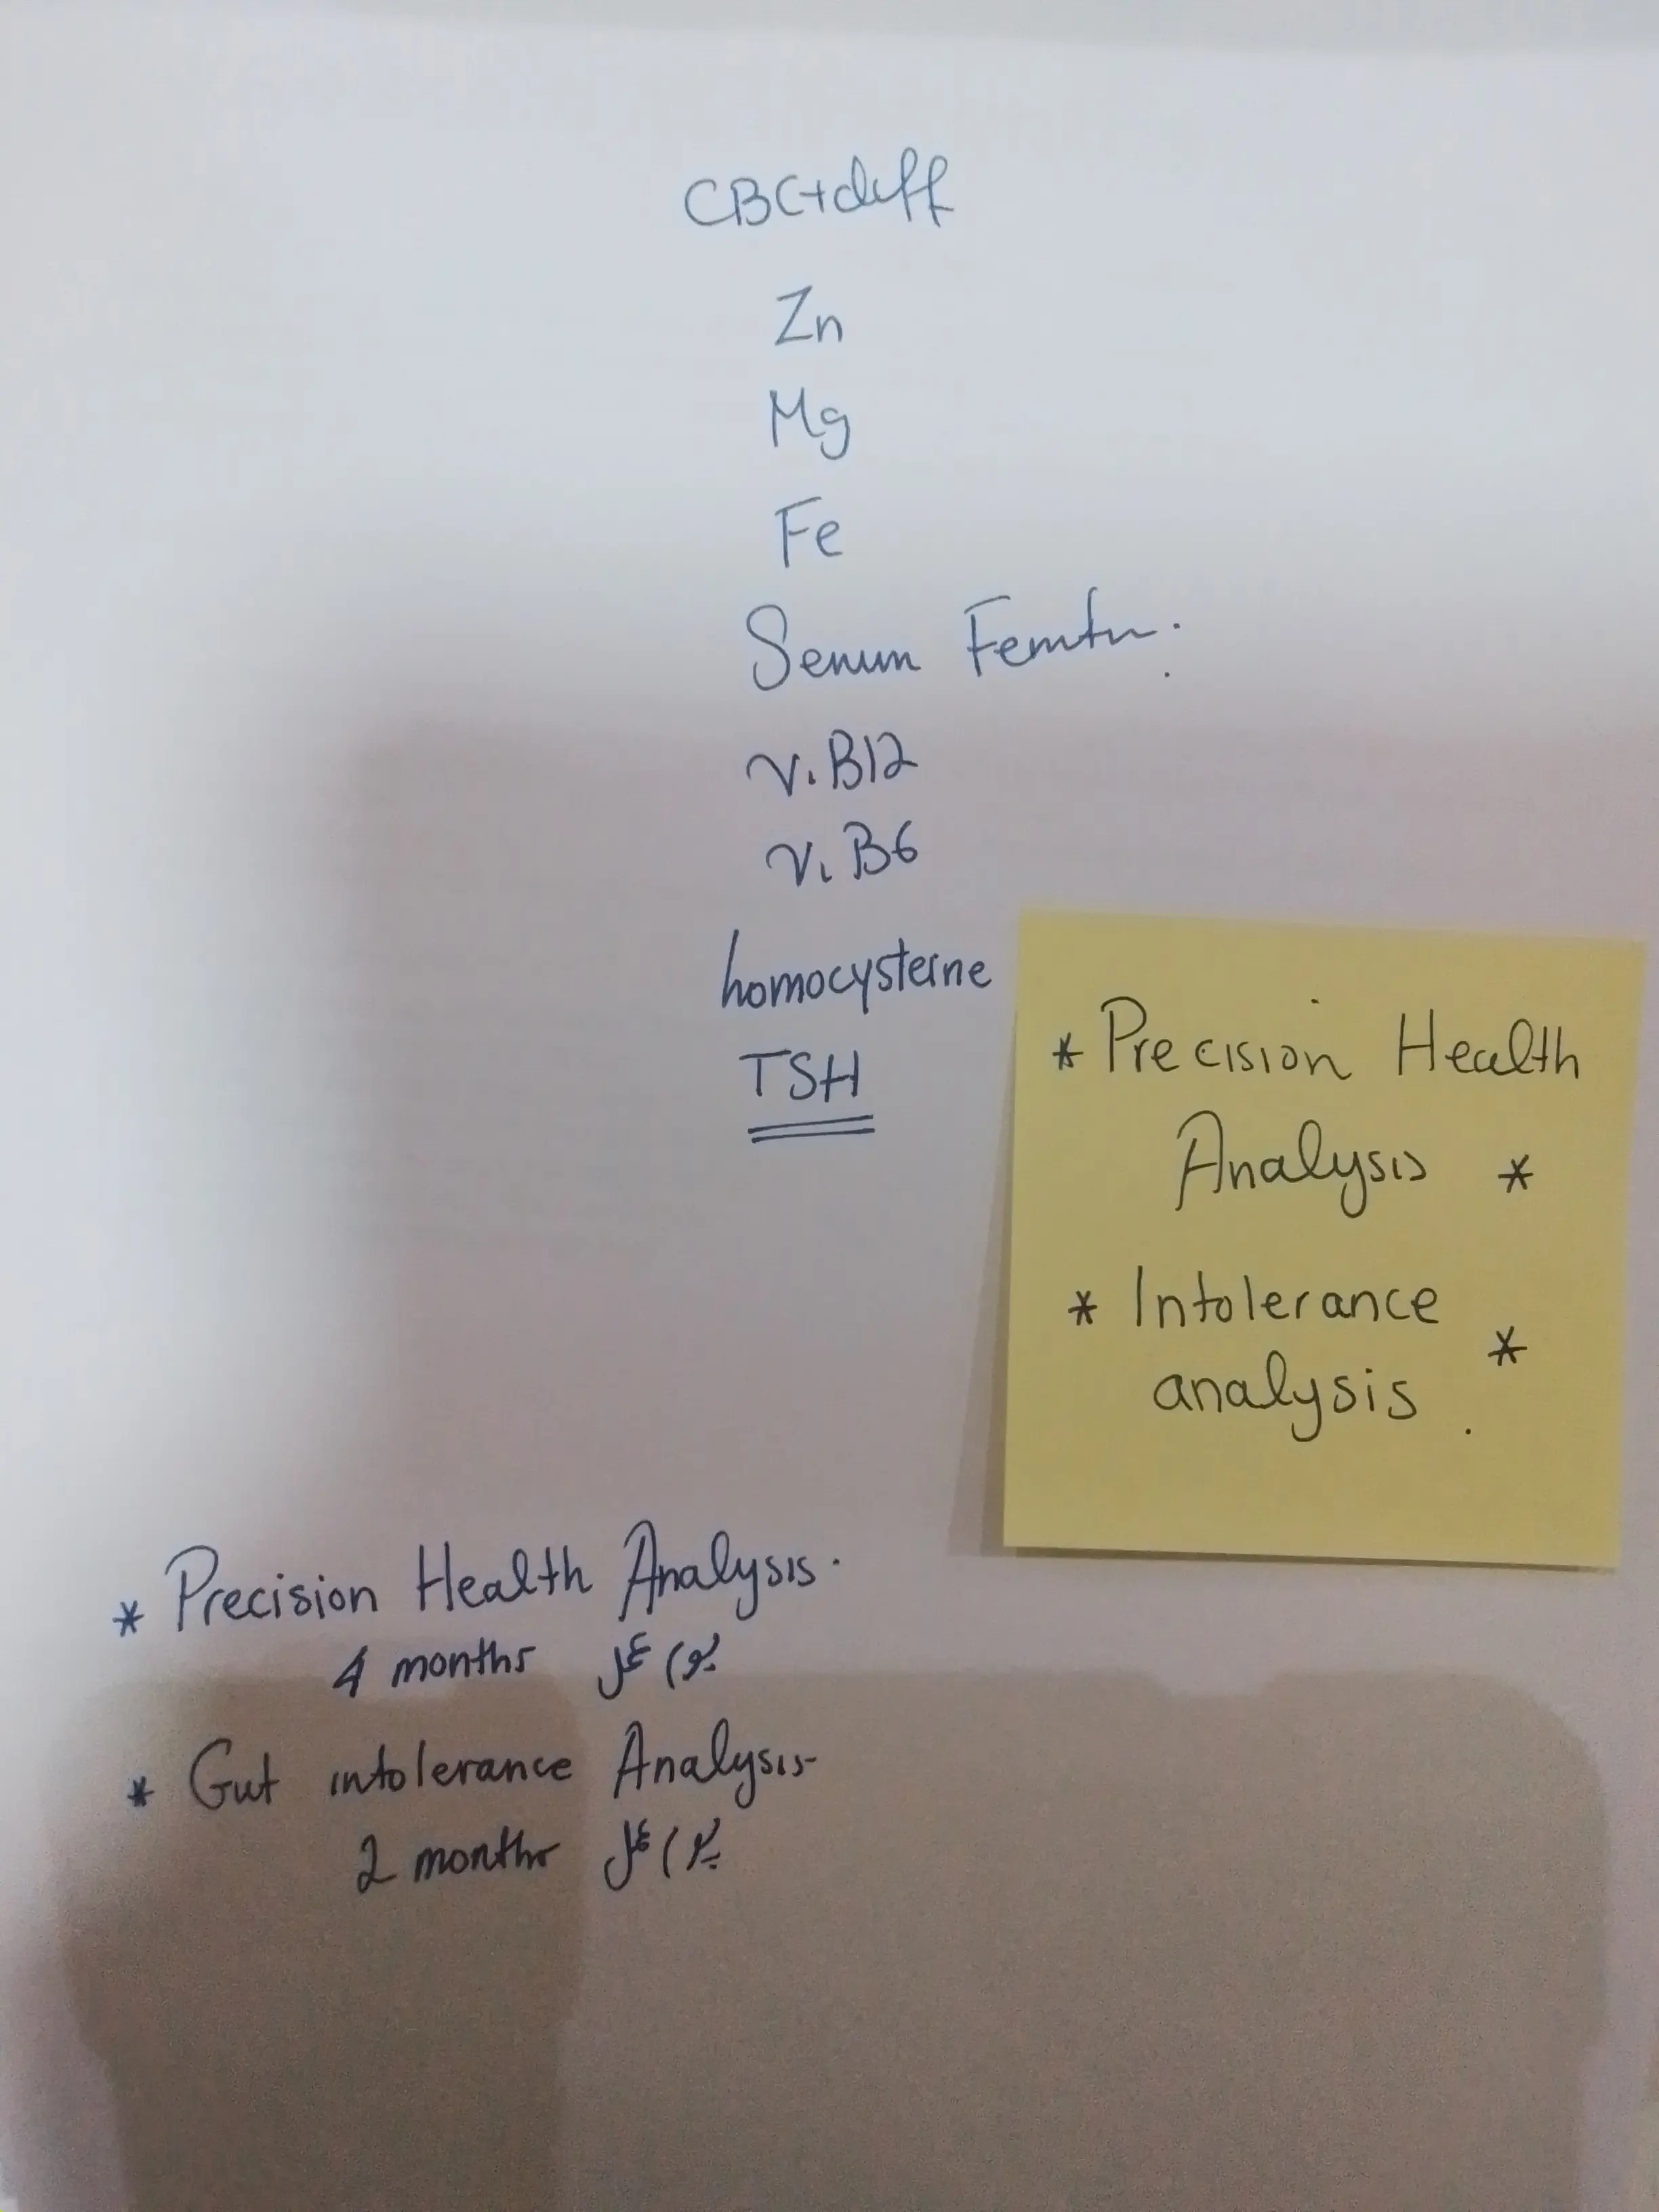 CBC+diff
Zn
Mg
Fe
Serum Ferritin.
V.B12
V.B6
homocysteine
TSH
* Precision Health
Analysis *
* Intolerance
analysis. *
* Precision Health Analysis.
4 months كل
* Gut intolerance Analysis-
2 months كل